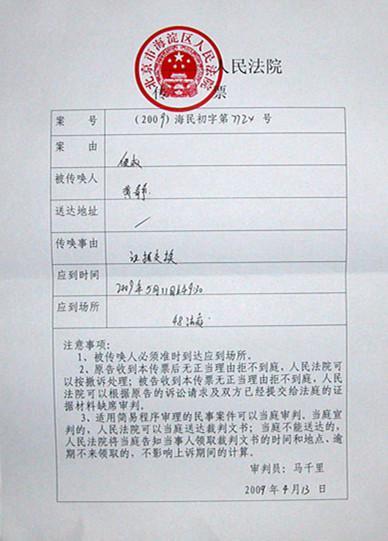 北京市海淀区人民法院
人民法院
传 票
案 号 (2009)海民初字第7724号
案 由 侵权
被传唤人
送达地址 /
传唤事由 证据交换
应到时间 2009年5月11日
应到场所 48法庭
注意事项:
1、被传唤人必须准时到达应到场所。
2、原告收到本传票后无正当理由拒不到庭,人民法院可
以按撤诉处理;被告收到本传票无正当理由拒不到庭,人民
法院可以根据原告的诉讼请求及双方已经提交给法庭的证
据材料缺席审判。
3、适用简易程序审理的民事案件可以当庭审判、当庭宣
判的,人民法院可以当庭送达裁判文书;当庭不能送达的,
人民法院将当庭告知当事人领取裁判文书的时间和地点、逾
期不来领取的,不影响上诉期间的计算。
审判员:马千里
2009年4月13日